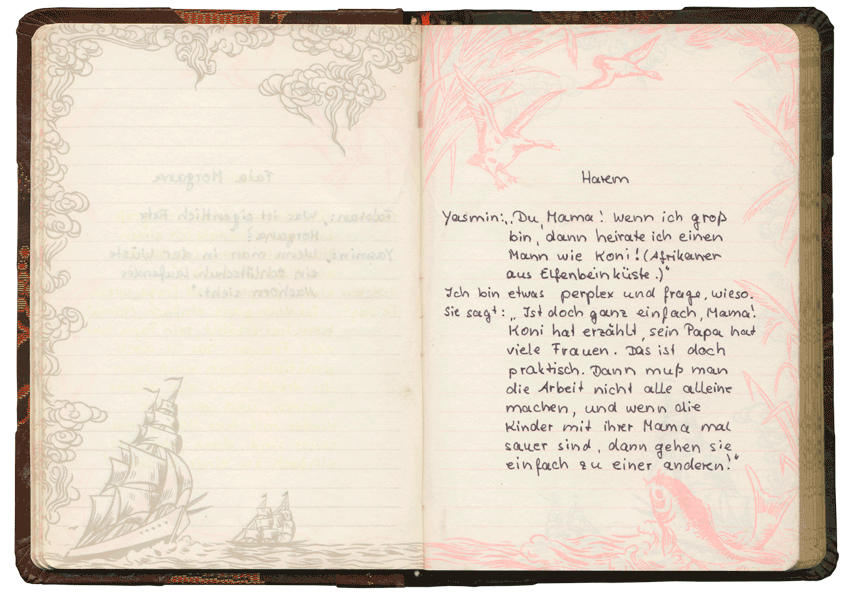 Harem
Yasmin: „Du, Mama! Wenn ich groß
bin, dann heirate ich einen
Mann wie Koni! (Afrikaner
aus Elfenbeinküste.)“
Ich bin etwas perplex und frage, wieso.
Sie sagt: „Ist doch ganz einfach, Mama!
Koni hat erzählt, sein Papa hat
viele Frauen. Das ist doch
praktisch. Dann muß man
die Arbeit nicht alle alleine
machen, und wenn die
Kinder mit ihrer Mama mal
sauer sind, dann gehen sie
einfach zu einer anderen!“